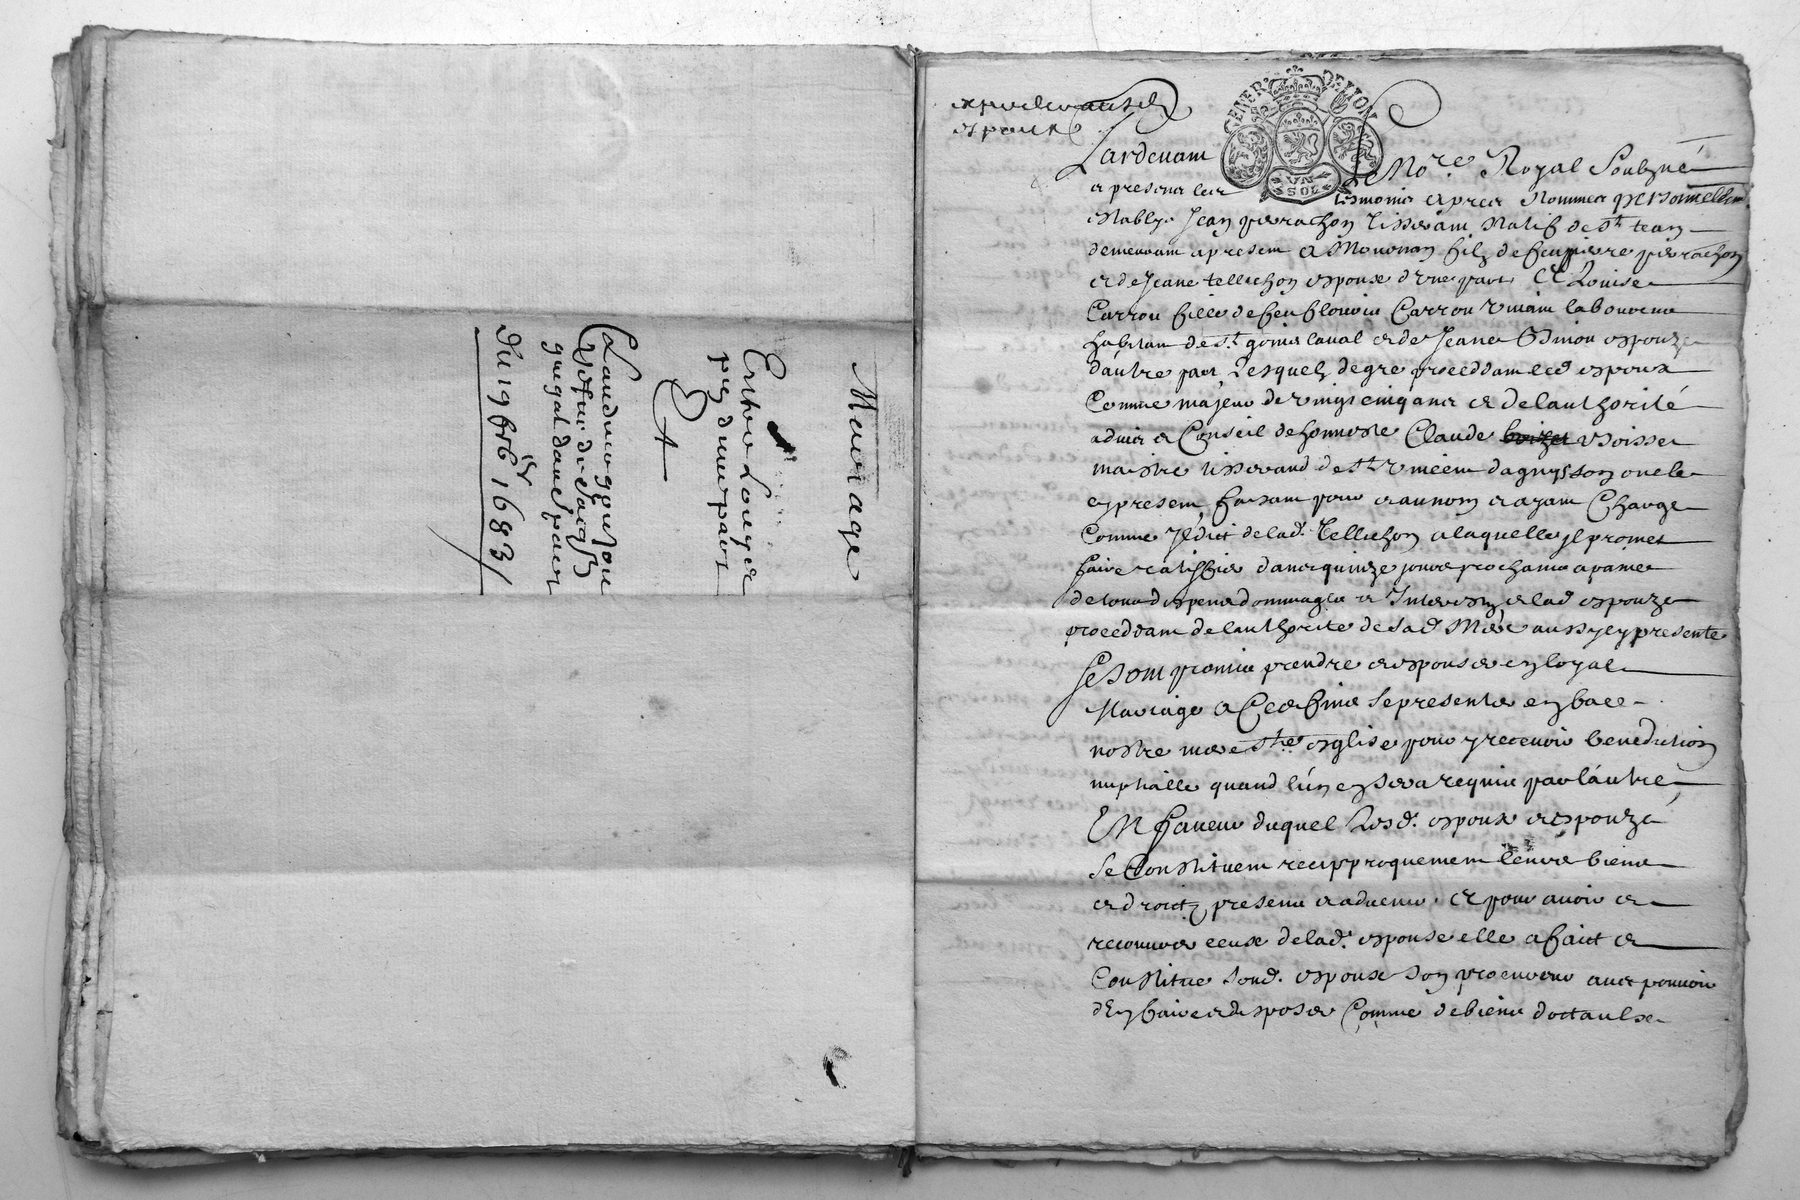 Mariage
Entre Louys
pier d'une part
Et
Claudine gouJon
Vefue de
quegat dautre part
du 19 9bre 1683
expedié auxd
espoux
GENER DE LION
UN
SOL
Pardevant le No.re Royal Soubzné
et presens les tesmoins apres nommes personnellem
estably Jean pierrachon tisserant natif de st Jean
demeurant apresent a Mornan filz de feu pierre pierrachon
et de Jeane tellichon espoux d'une part Et Louise
Carron fille de feu Carron vivant laboureur
habitant de st. genis laval et de Jeane Simon espouze
dautre part Lesquelz de gre proceddant led espoux
Comme majeur de vingt cinq ans et de lauthorité
advis et Conseil de honneste Claude voisset
maistre tisserand de st. son oncle
cy present faisant pour et au nom et ayant Charge
Comme Jl dict de lad. Tellichon a laquelle Jl promet
faire ratiffier dans quinze jours prochains a paine
de tous despens dommages et Interestz et lad espouze
proceddant de lauthorite de sad Mere aussy cy presente
Se sont promis prendre et espouser en loyal
Mariage a Ces fins se presenter en face
nostre mere ste esglise pour y recevoir benediction
nuptialle quand l'un en sera requis par lautre
En faveur duquel Lesd. espoux et espouze
se Constituent reciproquement leurs biens
et droictz presens et advenir. Et pour avoir et
recouvrer ceux de lad. espouse elle a faict et
Constitue sond. espoux son procureur avec pouvoir
d'En faire et disposer Comme de biens doctaulx